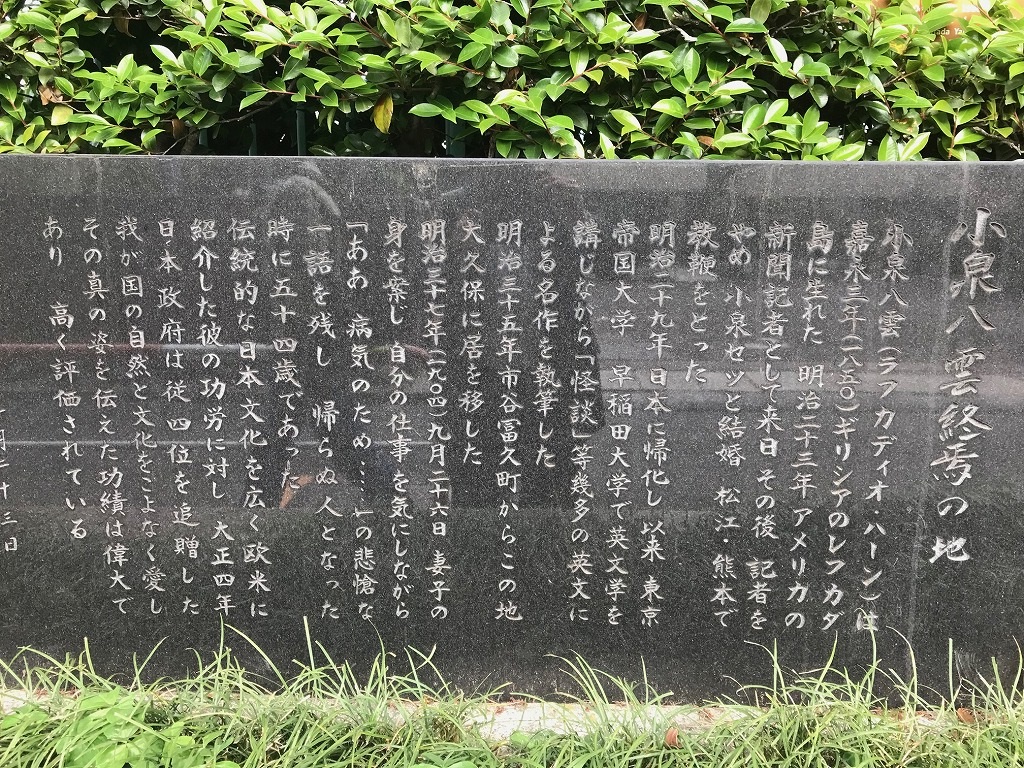 小泉八雲終焉の地
小泉八雲（ラフカディオ・ハーン）は
嘉永三年（一八五〇）ギリシアのレフカダ
島に生れた　明治二十三年アメリカの
新聞記者として来日その後　記者を
やめ　小泉セツと結婚　松江・熊本で
教鞭をとった
明治二十九年日本に帰化し以来　東京
帝国大学　早稲田大学で英文学を
講じながら「怪談」等幾多の英文に
よる名作を執筆した
明治三十五年市谷富久町からこの地
大久保に居を移した
明治三十七年（一九〇四）九月二十六日　妻子の
身を案じ　自分の仕事を気にしながら
「ああ　病気のため……」の悲愴な
一語を残し　帰らぬ人となった
時に五十四歳であった
伝統的な日本文化を広く欧米に
紹介した彼の功労に対し　大正四年
日本政府は従四位を追贈した
我が国の自然と文化をこよなく愛し
その真の姿を伝えた功績は偉大で
あり　高く評価されている
月二十三日